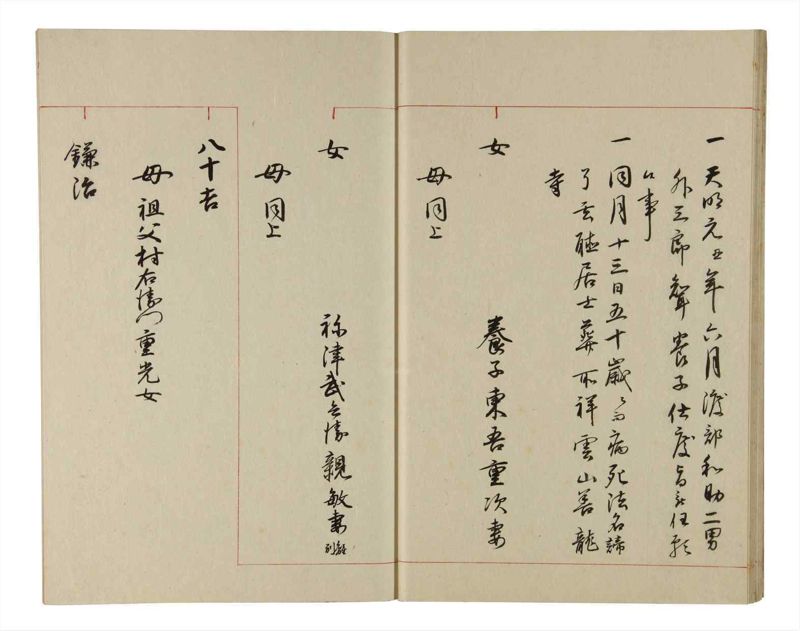 一 天明元丑年六月渡部和助二男
外三郎聟養子仕度旨願
口事
一 同月十三日五十歳ニ而病死法名諦
了玄聴居士葬所祥雲山善龍
寺
女
養子東吾重次妻
母 同上
女
祢津武兵衛親敏妻
母 同上
八十吉
母 祖父村右衛門重光女
鎌治